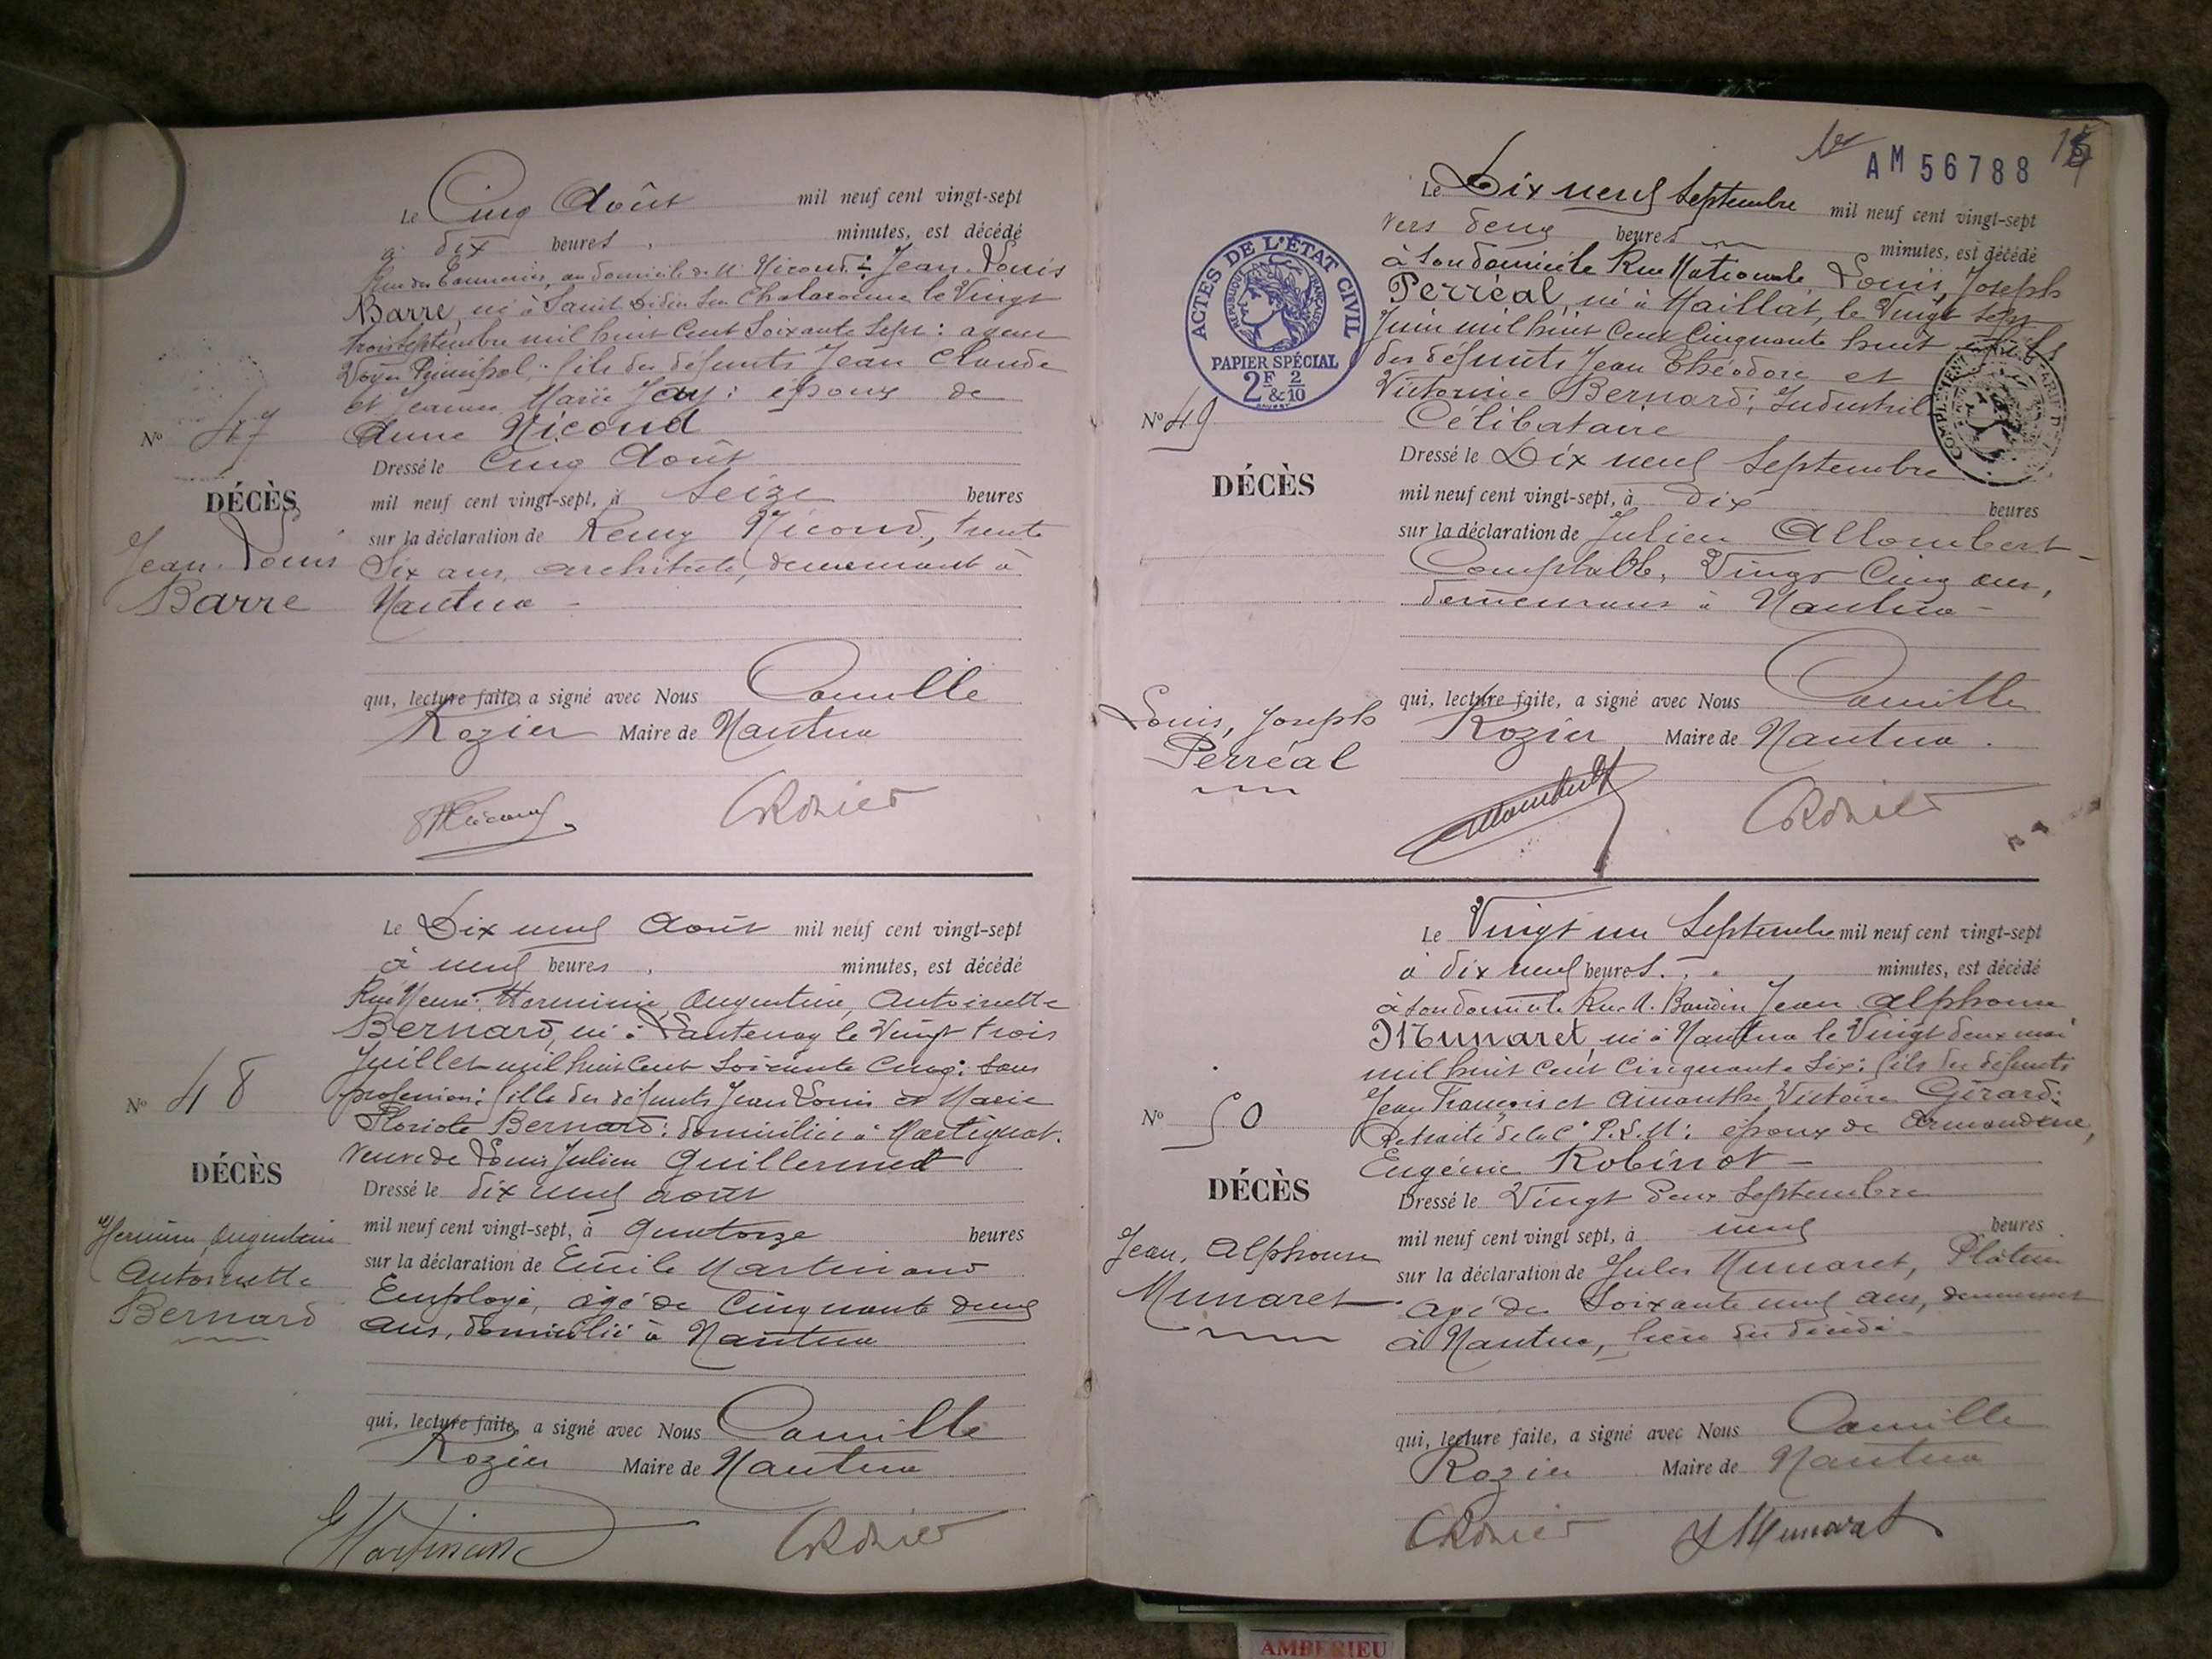 Le Cinq Août mil neuf cent vingt-sept
à dix heures, minutes, est décédé
Rue des Tanneries, au domicile de M. Nicoud : Jean-Louis
Barre, né à Saint Didier sur Chalaronne le Vingt
trois Septembre mil huit cent Soixante Sept : agent
Voyer Principal : fils des défunts Jean Claude
et Jeanne Marie Jay : époux de
Anne Nicoud
N° 47
Dressé le Cinq Août
DÉCÈS
mil neuf cent vingt-sept, à Seize heures
sur la déclaration de Remy Nicoud, trente
Jean-Louis
Six ans, architecte, demeurant à
Barre
Nantua -
qui, lecture faite, a signé avec Nous Camille
Rozier Maire de Nantua
CRozier
Le Dix neuf Août mil neuf cent vingt-sept
à neuf heures, minutes, est décédé
Rue Neuve : Herminie, Augustine, Antoinette
Bernard, né à Lantenay le Vingt trois
Juillet mil huit cent Soixante Cinq : Sans
profession : fille des défunts Jean Louis et Marie
N° 48
Floriste Bernard : domiciliée à Martignat.
Veuve de Louis Julien Guillermet
DÉCÈS
Dressé le dix neuf août
mil neuf cent vingt-sept, à Quatorze heures
Herminie Augustine
Antoinette
Bernard
sur la déclaration de Emile Martinand
Employé, âgé de Cinquante deux
ans, domicilié à Nantua
qui, lecture faite, a signé avec Nous Camille
Rozier Maire de Nantua
EMartinand
CRozier
AM 56788
Le Dix neuf Septembre mil neuf cent vingt-sept
vers deux heures minutes, est décédé
à son domicile Rue Nationale, Louis, Joseph
Perréal, né à Maillat, le Vingt Sept
Juin mil huit cent Cinquante huit : fils
des défunts Jean Théodore et
Victorine Bernard ; Industriel
Célibataire
ACTES DE L'ÉTAT CIVIL
RÉPUBLIQUE FRANÇAISE
PAPIER SPÉCIAL
2F & 2/10
N° 49
DÉCÈS
Dressé le Dix neuf Septembre
mil neuf cent vingt-sept, à dix heures
sur la déclaration de Julien Allombert-
Comptable, Vingt Cinq ans,
demeurant à Nantua -
Louis, Joseph
Perréal
qui, lecture faite, a signé avec Nous Camille
Rozier Maire de Nantua.
Allombert
CRozier
Le Vingt un Septembre mil neuf cent vingt-sept
à dix neuf heures. minutes, est décédé
à son domicile Rue A. Baudin Jean Alphonse
Munaret, né à Nantua le Vingt deux mai
mil huit cent Cinquante Six : fils des défunts
Jean François et Amanthe Victoire Gérard :
Retraité de la Cie P.L.M : époux de Armandine,
Eugénie Robinot -
N° 50
DÉCÈS
Dressé le Vingt deux Septembre
mil neuf cent vingt sept, à neuf heures
Jean, Alphonse
Munaret
sur la déclaration de Jules Munaret, Plâtrier
âgé de Soixante neuf ans, demeurant
à Nantua, lieu du décès -
qui, lecture faite, a signé avec Nous Camille
Rozier Maire de Nantua
CRozier
JMunaret
AMBERIEU